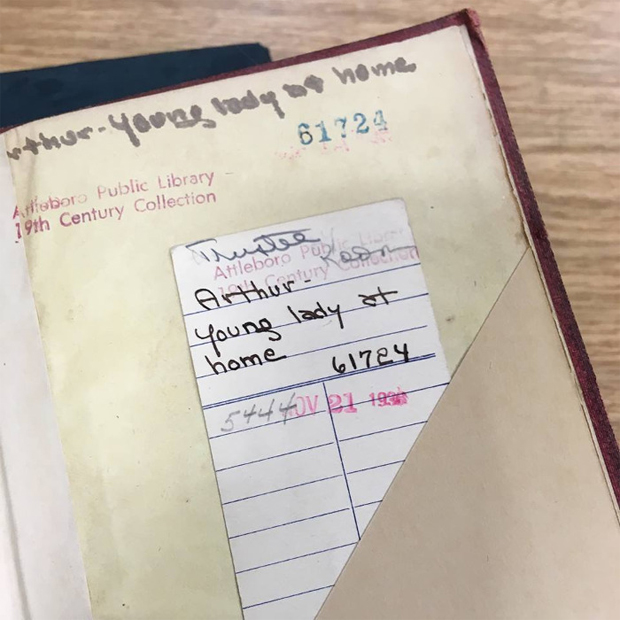 Arthur-Young lady at home
61724
Attleboro Public Library
19th Century Collection
Trustee
Room
Attleboro Public Library
19th Century Collection
Arthur-
young lady at
home 61724
5444 NOV 21